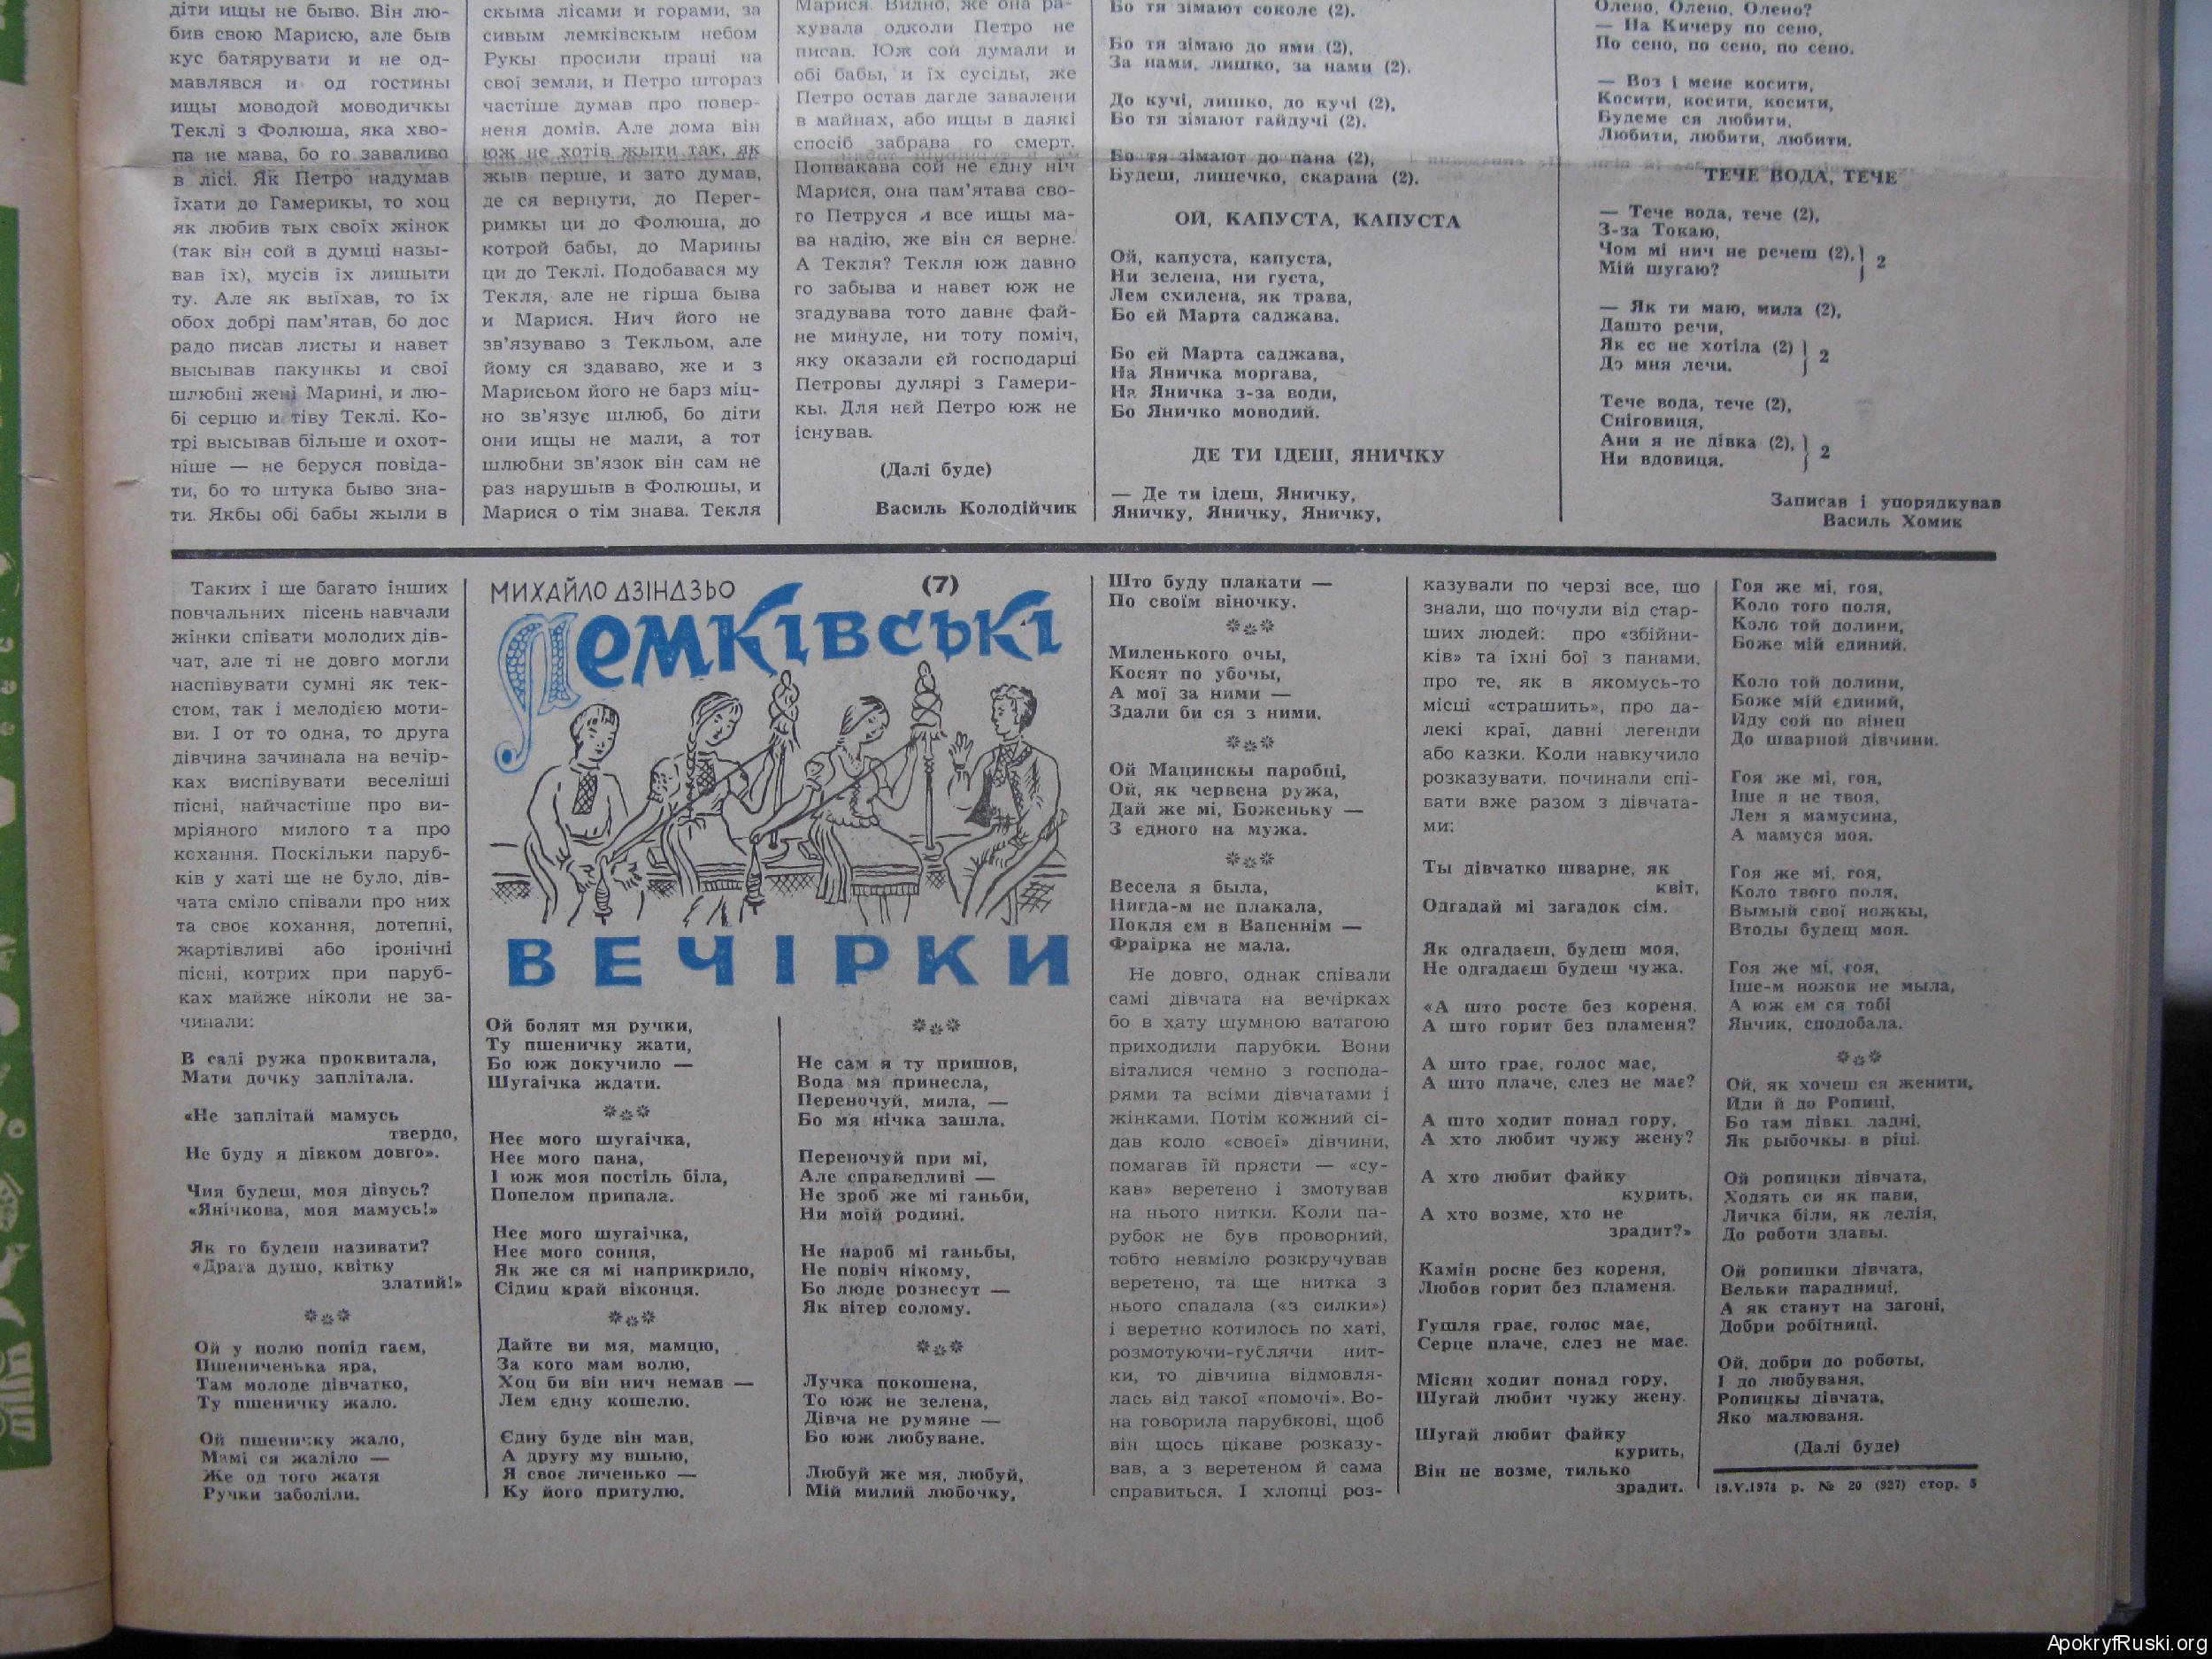 діти ищы не быво. Він лю-
бив свою Марисю, але быв
кус батярувати и не од-
мавлявся и од гостины
ищы моводой моводичкы
Теклі з Фолюша, яка хво-
па не мава, бо го заваливо
в лісі. Як Петро надумав
їхати до Гамерикы, то хоц
як любив тых своїх жінок
(так він сой в думці назы-
вав їх), мусів їх лишыти
ту. Але як выїхав, то їх
обох добрі пам'ятав, бо дос
радо писав листы и навет
высывав пакункы и свої
шлюбні жені Марині, и лю-
бі серцю и тіву Теклі. Ко-
трі высывав більше и охот-
ніше — не беруся повіда-
ти, бо то штука быво зна-
ти. Якбы обі бабы жыли в
скыма лісами и горами, за
сивым лемківскым небом
Рукы просили праці на
свої земли, и Петро штораз
частіше думав про повер-
неня домів. Але дома він
юж не хотів жыти так, як
жыв перше, и зато думав,
де ся вернути, до Перег-
римкы ци до Фолюша, до
котрой бабы, до Марины
ци до Теклі. Подобавася му
Текля, але не гірша быва
и Марися. Нич його не
зв'язуваво з Текльом, але
йому ся здававо, же и з
Марисьом його не барз міц-
но зв'язує шлюб, бо діти
они ищы не мали, а тот
шлюбни зв'язок він сам не
раз нарушыв в Фолюшы, и
Марися о тім знава. Текля
Марися. Видно, же она ра-
хувала одколи Петро не
писав. Юж сой думали и
обі бабы, и їх сусіды, же
Петро остав дагде завалени
в майнах, або ищы в даякі
спосіб забрава го смерт.
Попвакава сой не єдну ніч
Марися, она пам'ятава сво-
го Петруся и все ищы ма-
ва надію, же він ся верне.
А Текля? Текля юж давно
го забыва и навет юж не
згадувава тото давнє фай-
не минуле, ни тоту поміч,
яку оказали єй господарці
Петровы дулярі з Гамери-
кы. Для нєй Петро юж не
існував.
(Далі буде)
Василь Колодійчик
Бо тя зімают соколе (2).
Бо тя зімаю до ями (2),
За нами, лишко, за нами (2).
До кучі, лишко, до кучі (2),
Бо тя зімают гайдучі (2).
Бо тя зімают до пана (2),
Будеш, лишечко, скарана (2).
ОЙ, КАПУСТА, КАПУСТА
Ой, капуста, капуста,
Ни зелена, ни густа,
Лем схилена, як трава,
Бо єй Марта саджава.
Бо єй Марта саджава,
На Яничка моргава,
На Яничка з-за води,
Бо Яничко моводий.
ДЕ ТИ ІДЕШ, ЯНИЧКУ
— Де ти ідеш, Яничку,
Яничку, Яничку, Яничку,
Олено, Олено, Олено?
— На Кичеру по сено,
По сено, по сено, по сено.
— Воз і мене косити,
Косити, косити, косити,
Будеме ся любити,
Любити, любити, любити.
ТЕЧЕ ВОДА, ТЕЧЕ
— Тече вода, тече (2),
З-за Токаю,
Чом мі нич не речеш (2),
Мій шугаю? } 2
— Як ти маю, мила (2),
Дашто речи,
Як єс не хотіла (2)
До мня лечи. } 2
Тече вода, тече (2),
Сніговиця,
Ани я не дівка (2),
Ни вдовиця. } 2
Записав і упорядкував
Василь Хомик
Таких і ще багато інших
повчальних пісень навчали
жінки співати молодих дів-
чат, але ті не довго могли
наспівувати сумні як тек-
стом, так і мелодією моти-
ви. І от то одна, то друга
дівчина зачинала на вечір-
ках виспівувати веселіші
пісні, найчастіше про ви-
мріяного милого та про
кохання. Поскільки паруб-
ків у хаті ще не було, дів-
чата сміло співали про них
та своє кохання, дотепні,
жартівливі або іронічні
пісні, котрих при паруб-
ках майже ніколи не за-
чинали:
В саді ружа проквитала,
Мати дочку заплітала.
«Не заплітай мамусь
твердо,
Не буду я дівком довго».
Чия будеш, моя дівусь?
«Янічкова, моя мамусь!»
Як го будеш називати?
«Драга душо, квітку
златий!»
***
Ой у полю попід гаєм,
Пшениченька яра,
Там молоде дівчатко,
Ту пшеничку жало.
Ой пшеничку жало,
Мамі ся жаліло —
Же од того жатя
Ручки заболіли.
МИХАЙЛО ДЗІНДЗЬО
(7)
Лемківські
ВЕЧІРКИ
Ой болят мя ручки,
Ту пшеничку жати,
Бо юж докучило —
Шугаічка ждати.
***
Неє мого шугаічка,
Неє мого пана,
І юж моя постіль біла,
Попелом припала.
Неє мого шугаічка,
Неє мого сонця,
Як же ся мі наприкрило,
Сідиц край віконця.
***
Дайте ви мя, мамцю,
За кого мам волю,
Хоц би він нич немав —
Лем єдну кошелю.
Єдну буде він мав,
А другу му вшыю,
Я своє личенько —
Ку його притулю.
***
Не сам я ту пришов,
Вода мя принесла,
Переночуй, мила, —
Бо мя нічка зашла.
Переночуй при мі,
Але справедливі —
Не зроб же мі ганьби,
Ни моїй родині.
Не нароб мі ганьбы,
Не повіч нікому,
Бо люде рознесут —
Як вітер солому.
***
Лучка покошена,
То юж не зелена,
Дівча не румяне —
Бо юж любуване.
Любуй же мя, любуй,
Мій милий любочку,
Што буду плакати —
По своїм віночку.
***
Миленького очы,
Косят по убочы,
А мої за ними —
Здали би ся з ними.
***
Ой Мацинскы паробці,
Ой, як червена ружа,
Дай же мі, Боженьку —
З єдного на мужа.
***
Весела я была,
Нигда-м не плакала,
Покля єм в Вапеннім —
Фраірка не мала.
Не довго, однак співали
самі дівчата на вечірках
бо в хату шумною ватагою
приходили парубки. Вони
віталися чемно з господа-
рями та всіми дівчатами і
жінками. Потім кожний сі-
дав коло «своєї» дівчини,
помагав їй прясти — «су-
кав» веретено і змотував
на нього нитки. Коли па-
рубок не був проворний,
тобто невміло розкручував
веретено, та ще нитка з
нього спадала («з силки»)
і веретно котилось по хаті,
розмотуючи-гублячи нит-
ки, то дівчина відмовля-
лась від такої «помочі». Во-
на говорила парубкові, щоб
він щось цікаве розказу-
вав, а з веретеном й сама
справиться. І хлопці роз-
казували по черзі все, що
знали, що почули від стар-
ших людей: про «збійни-
ків» та їхні бої з панами,
про те, як в якомусь-то
місці «страшить», про да-
лекі краї, давні легенди
або казки. Коли навкучило
розказувати, починали спі-
вати вже разом з дівчата-
ми:
Ты дівчатко шварне, як
квіт,
Одгадай мі загадок сім.
Як одгадаєш, будеш моя,
Не одгадаєш будеш чужа.
«А што росте без кореня,
А што горит без пламеня?
А што грає, голос має,
А што плаче, слез не має?
А што ходит понад гору,
А хто любит чужу жену?
А хто любит файку
курить,
А хто возме, хто не
зрадит?»
Камін росне без кореня,
Любов горит без пламеня.
Гушля грає, голос має,
Серце плаче, слез не має.
Місяц ходит понад гору,
Шугай любит чужу жену.
Шугай любит файку
курить,
Він не возме, тилько
зрадит.
Гоя же мі, гоя,
Коло того поля,
Коло той долини,
Боже мій єдиний.
Коло той долини,
Боже мій єдиний,
Иду сой по вінец
До шварной дівчини.
Гоя же мі, гоя,
Іше я не твоя,
Лем я мамусина,
А мамуся моя.
Гоя же мі, гоя,
Коло твого поля,
Вымый свої ножкы,
Втоды будещ моя.
Гоя же мі, гоя,
Іше-м ножок не мыла,
А юж єм ся тобі
Янчик, сподобала.
***
Ой, як хочеш ся женити,
Йди й до Ропиці,
Бо там дівкі ладні,
Як рыбочкы в ріці.
Ой ропицки дівчата,
Ходять си як пави,
Личка біли, як лелія,
До роботи здавы.
Ой ропицки дівчата,
Вельки парадниці,
А як станут на загоні,
Добри робітниці.
Ой, добри до роботы,
І до любуваня,
Ропицкы дівчата,
Яко малюваня.
(Далі буде)
19.V.1974 р. № 20 (927) стор. 5
ApokryfRuski.org